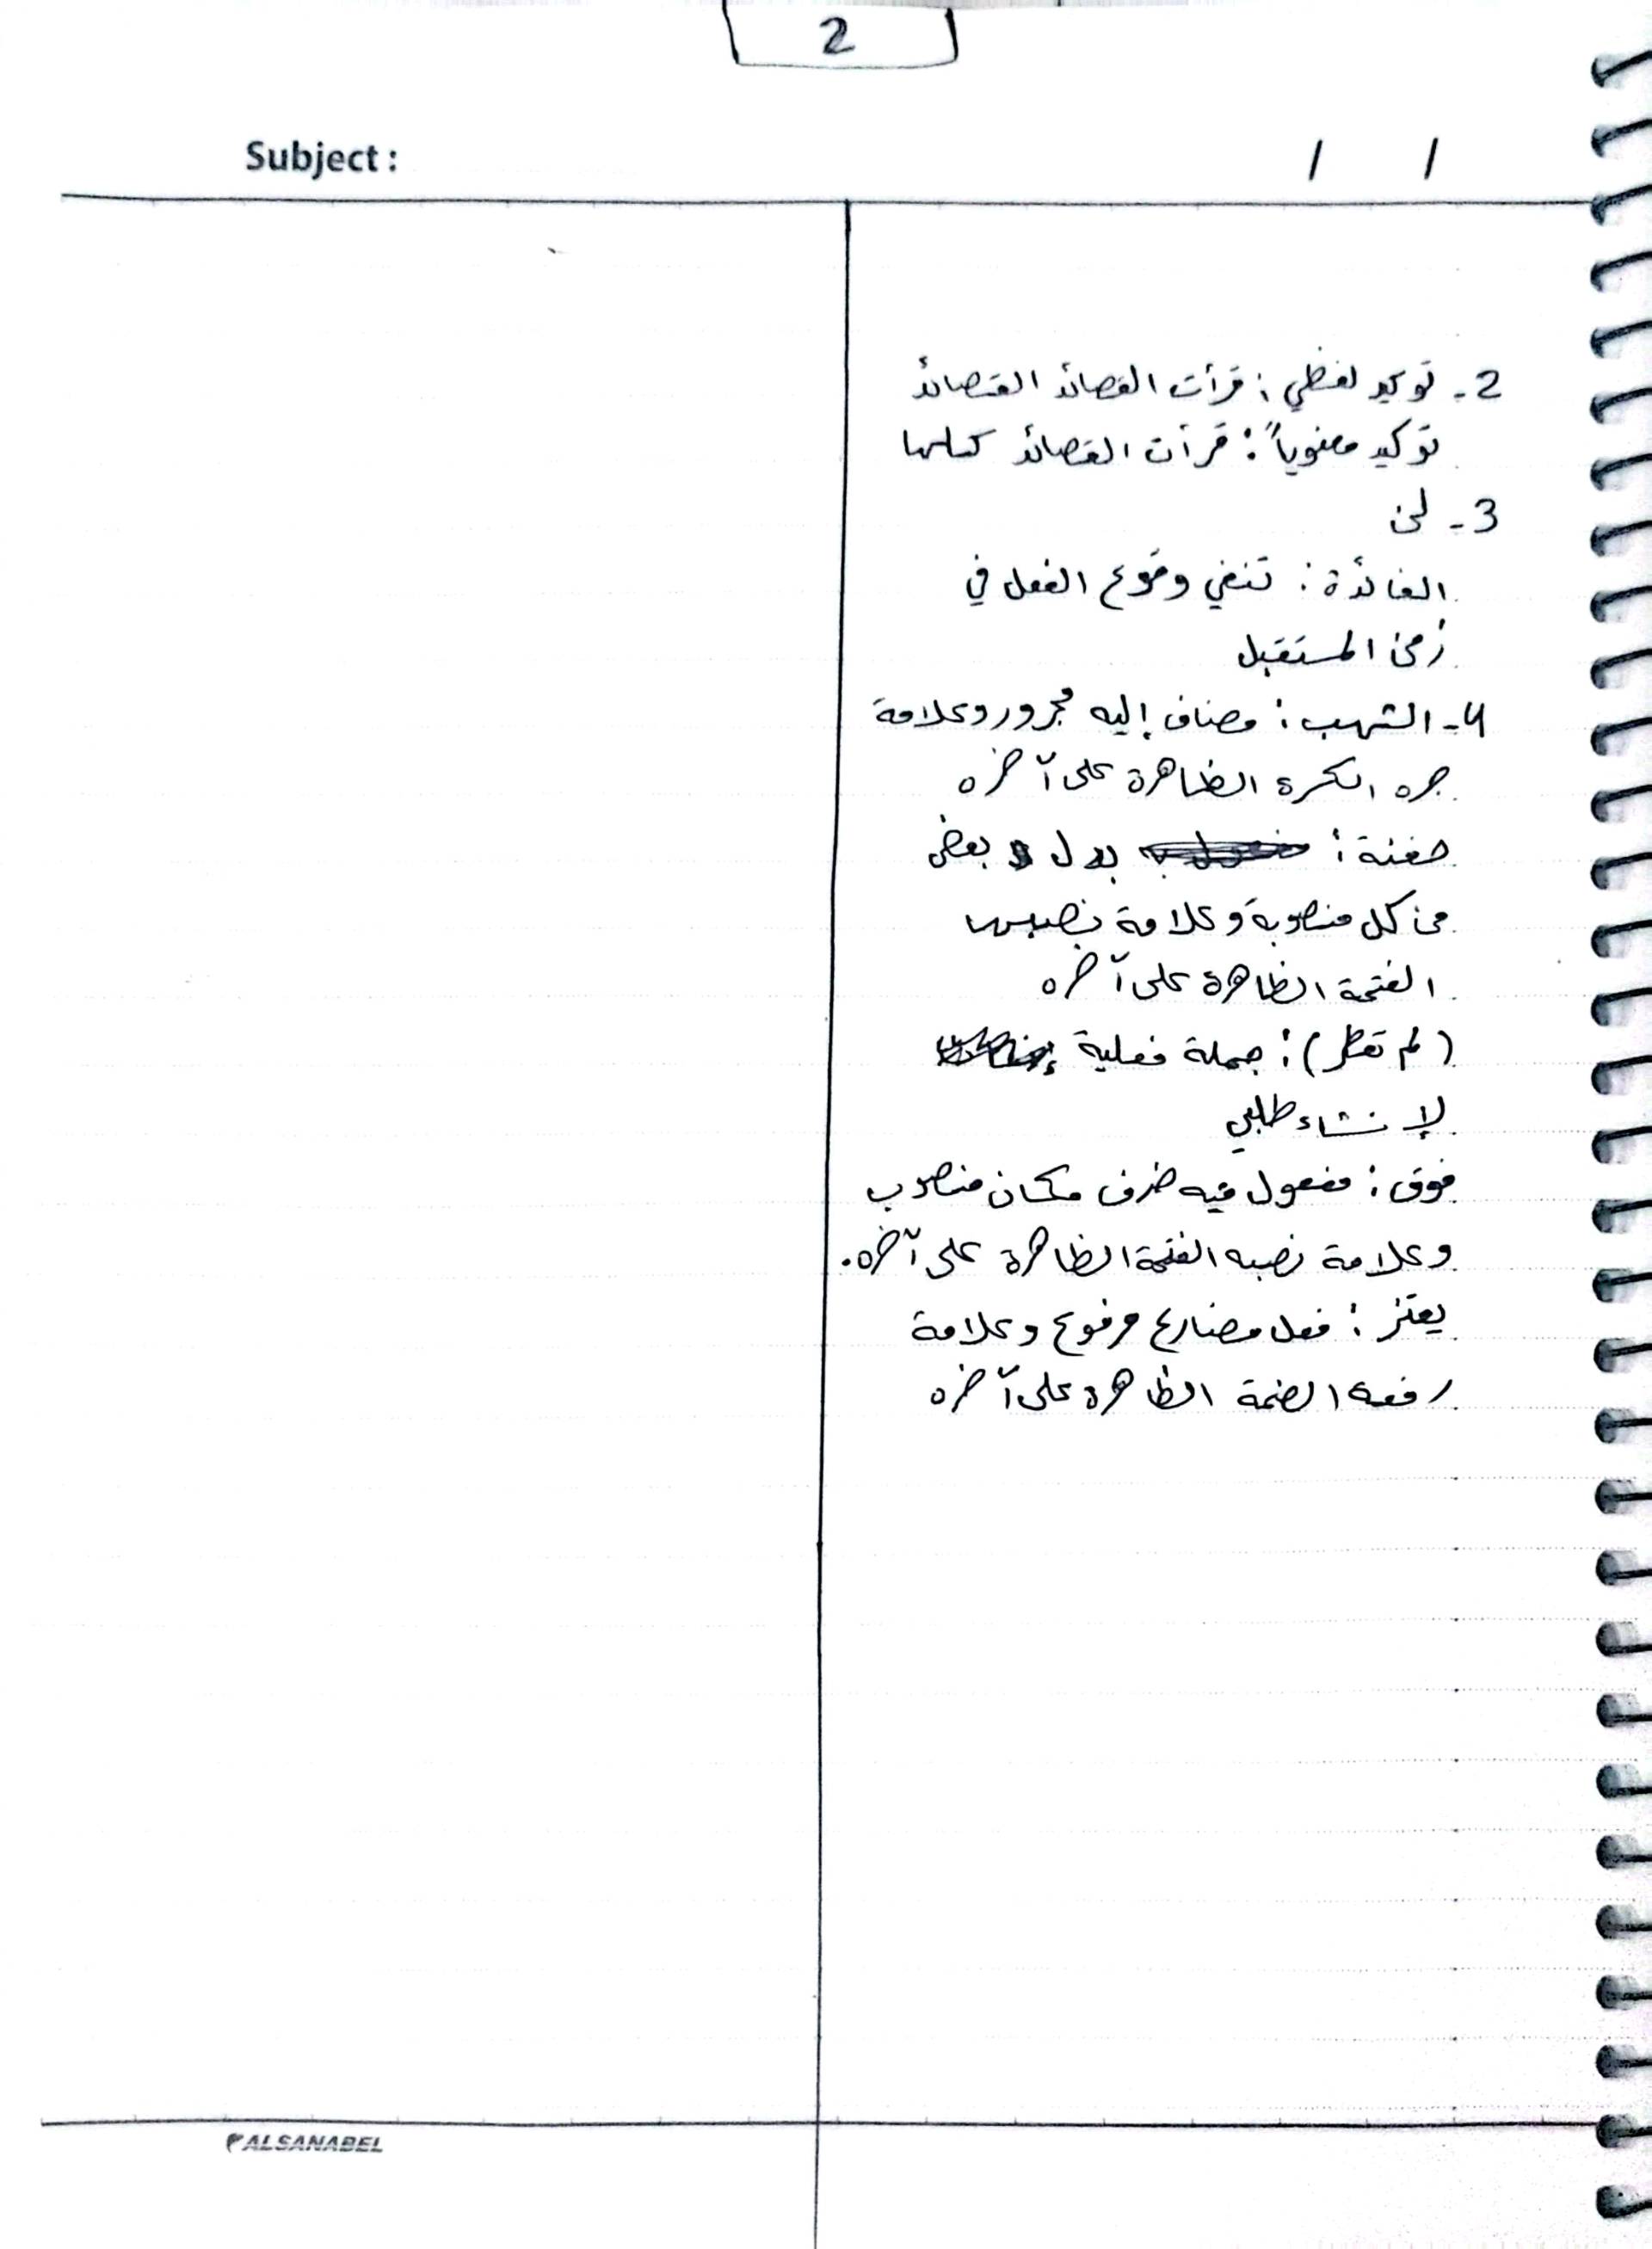 2
Subject :
/ /
2- توكيد لفظي : قرأت القصائد القصائد
توكيد معنوياً : قرأت القصائد كلها
3- لن
الفائدة : تنفي وقوع الفعل في
زمن المستقبل
4- الشهب : مضاف إليه مجرور وعلامة
جره الكسرة الظاهرة على آخره
حفنة : بدل بعض
من كل منصوبة وعلامة نصبها
الفتحة الظاهرة على آخره
(لم تعط) : جملة فعلية
لإنشاء طلبي
فوق : مفعول فيه ظرف مكان منصوب
وعلامة نصبه الفتحة الظاهرة على آخره.
يعتز : فعل مضارع مرفوع وعلامة
رفعه الضمة الظاهرة على آخره
ALSANABEL